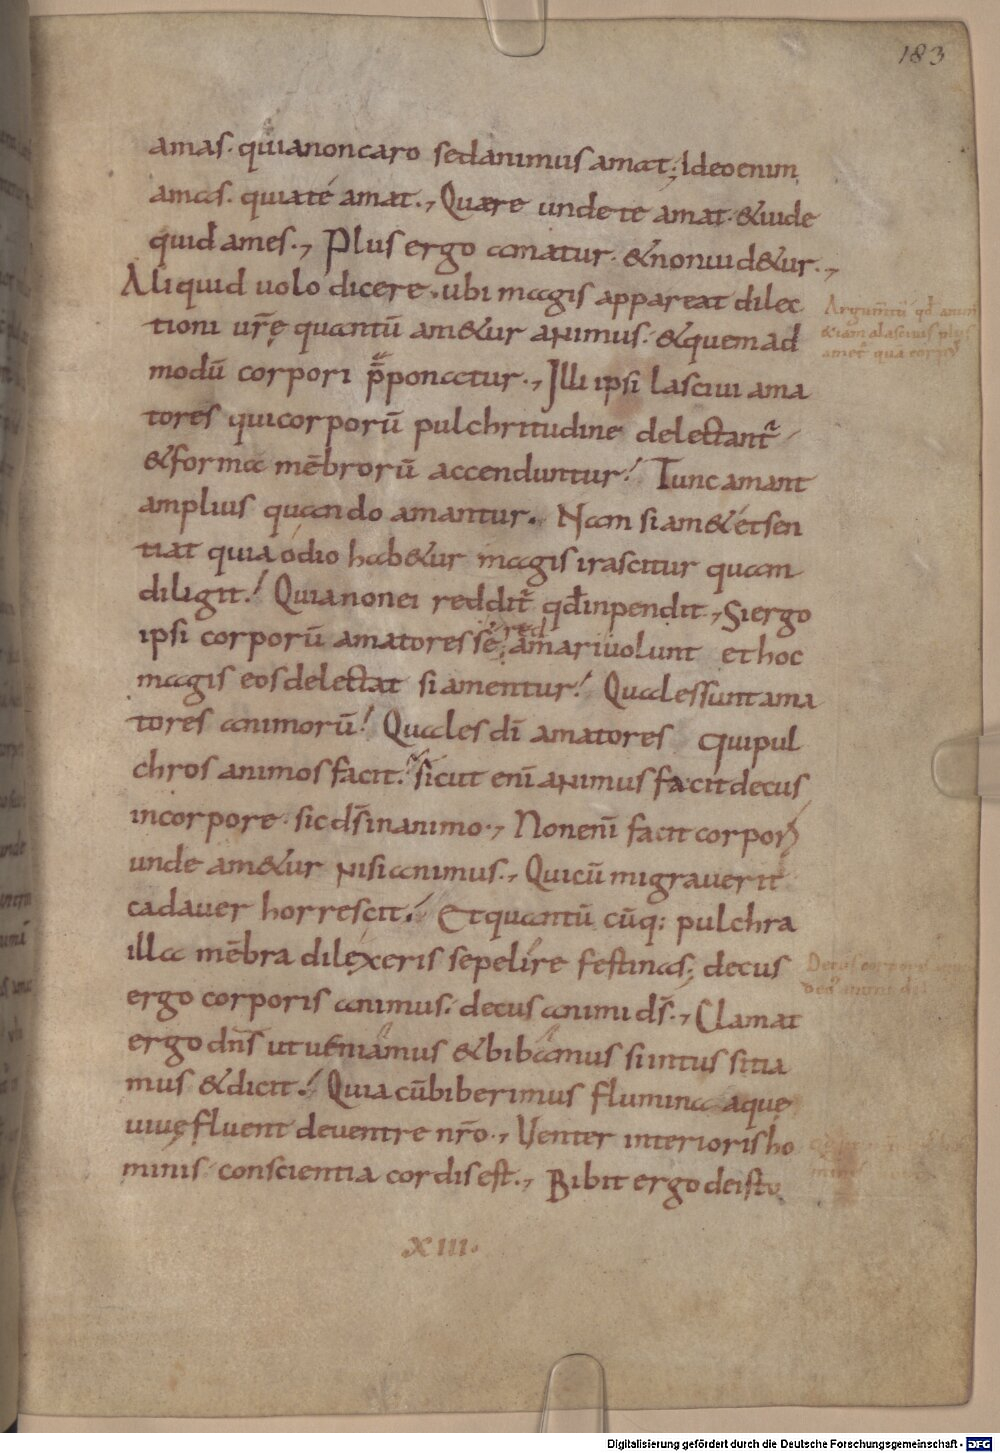 183
amas. quia non caro sed animus amat; Ideo enim
amas. quia té amat., Quare unde te amat. &uide
quid ames., Plus ergo amatur. & non uid&ur.,
Aliquid uolo dicere. ubi magis appareat dilec
tioni ur̄ę quantū am&ur aNimus. & quem ad
modū corpori p̄ponatur., Illi ipsi lasciui ama
tores qui corporū pulchritudine delectant̄
& forma mēbrorū accenduntur! Tunc amant
amplius quando amantur. Nam si am& et sen
tiat quia ódio hab&ur magis irascitur quam
diligit! Quia non ei reddit̄ qđ inpendit., Si ergo
ipsi corporū amatores se red amari uolunt et hoc
magis eos delectat si amentur! Quales sunt ama
tores animorū! Quales dī amatores qui pul
chros animos facit. sicut enī aNimus facit decus
in corpore. sic ds̄ in animo., Non enī facit corpore
unde am&ur Nisi animus., Qui cū migrauerit
cadauer horrescit! Et quantū cūq; pulchra
illa mēbra diléxeris sepelíre festinas; decus
ergo corporis animus. decus animi ds̄., Clamat
ergo dn̄s ut ueniamus & bibamus si intus sitia
mus & dicit! Quia cū biberimus flumina aquę
uiuę fluent de uentre nr̄o., Uenter interioris ho
minis. conscientia cordis est., Bibit ergo de isto
xiii.
Decus corporis
Digitalisierung gefördert durch die Deutsche Forschungsgemeinschaft - DFG